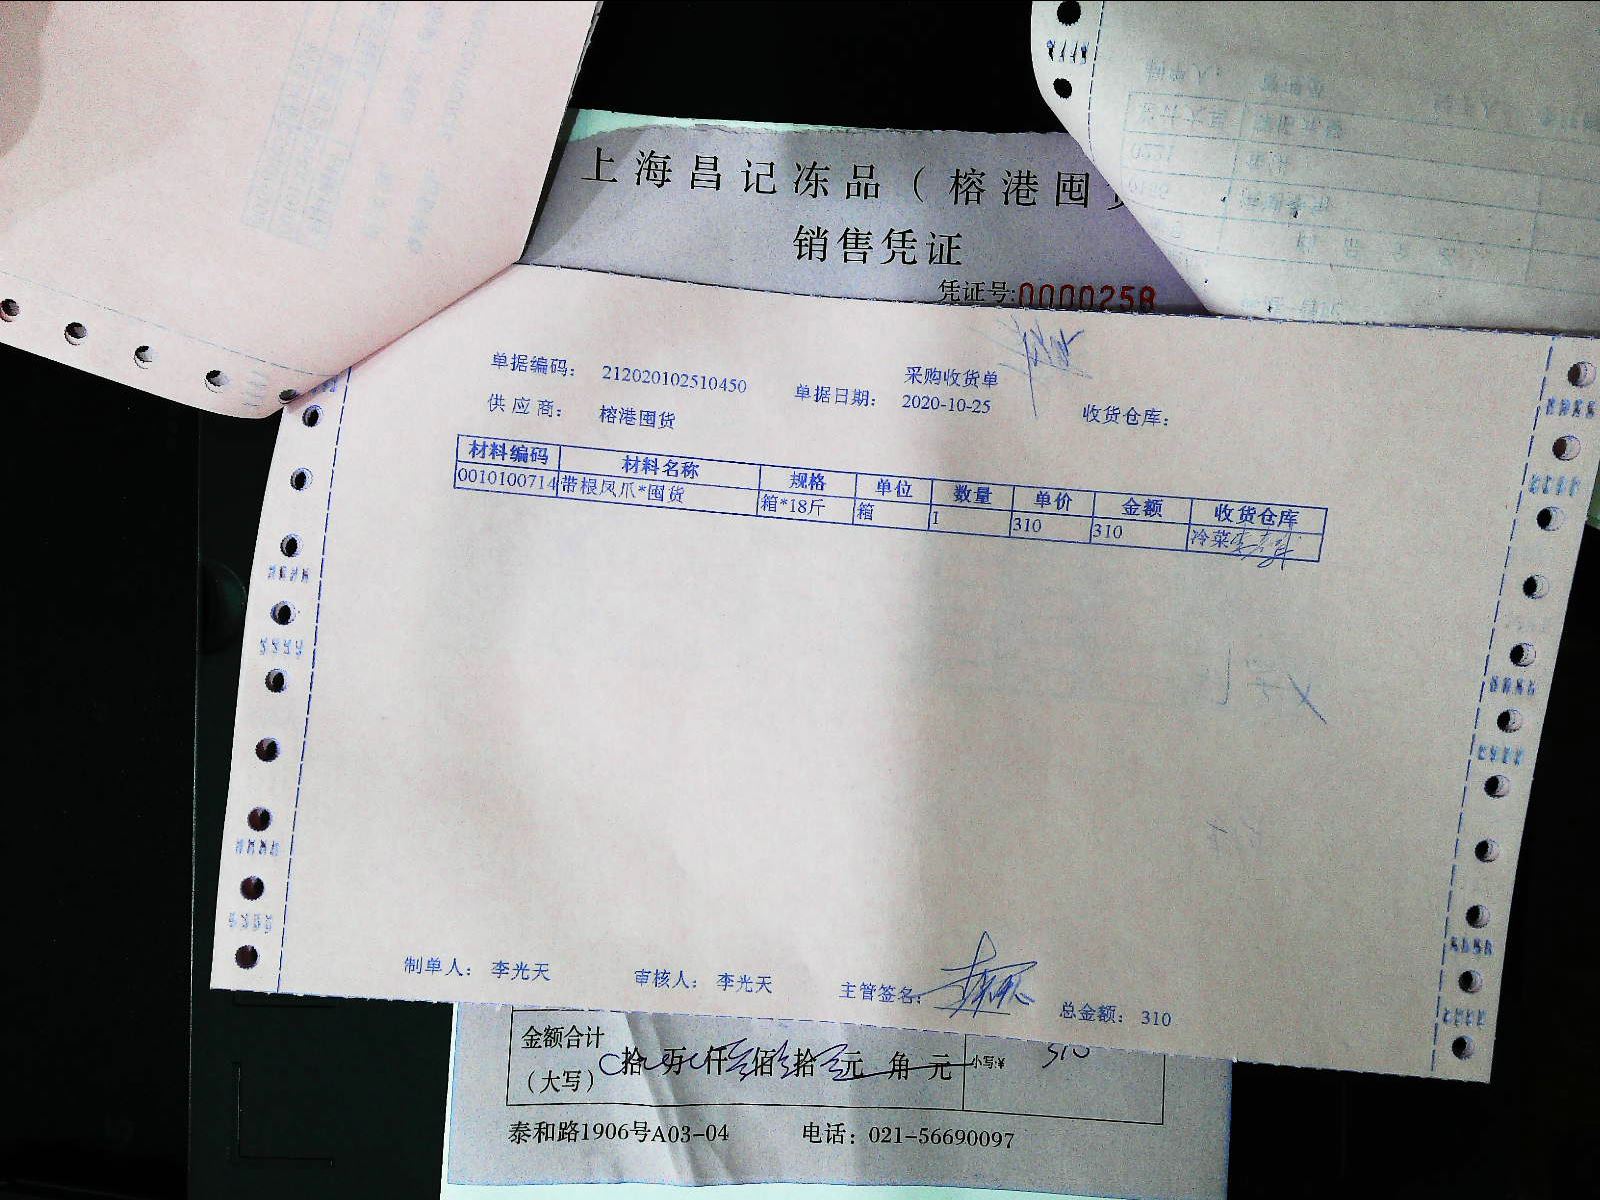 上海昌记冻品（榕港囤
销售凭证
凭证号:0000258
采购收货单
单据编码： 212020102510450 单据日期： 2020-10-25 收货仓库：
供应商： 榕港囤货
材料编码 材料名称 规格 单位 数量 单价 金额 收货仓库
0010100714 带根凤爪*囤货 箱*18斤 箱 1 310 310 冷菜
制单人： 李光天 审核人： 李光天 主管签名： 总金额： 310
金额合计
（大写） 拾 万 仟 佰 拾 元 角 元 小写:¥ 310
泰和路1906号A03-04 电话：021-56690097